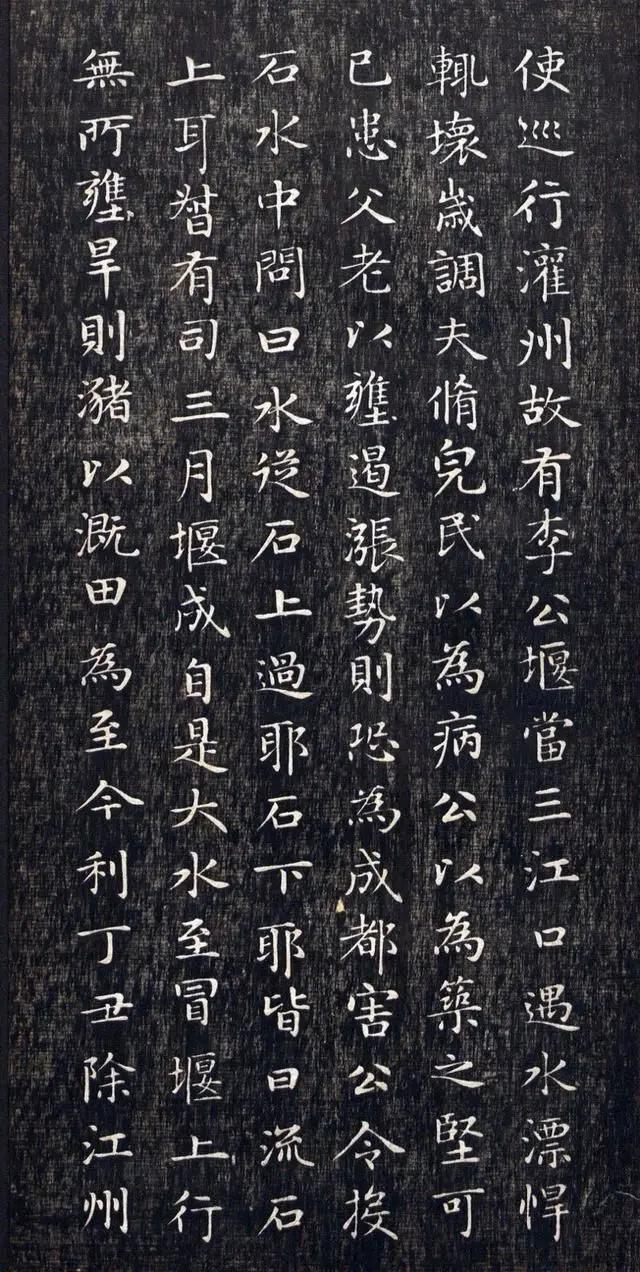 使巡行灌州故有李公堰當三江口遇水漂悍
輒壞歲調夫脩完民以為病公以為築之堅可
已患父老以壅遏漲勢則恐為成都害公令投
石水中問曰水從石上過耶石下耶皆曰流石
上耳督有司三月堰成自是大水至冒堰上行
無所壅旱則豬以溉田為至今利丁丑除江州